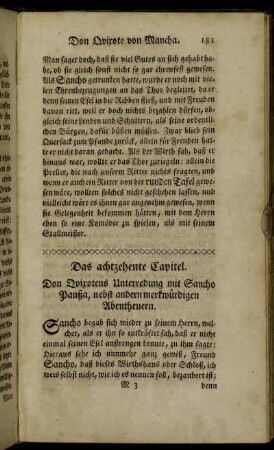 Don Qvixote von Mancha. 181
Man saget doch, daß sie viel Gutes an sich gehabt habe,
ob sie gleich sonst nicht so gar ehrenfest gewesen.
Als Sancho getruncken hatte, wurde er noch mit vielen
Ehrenbezeugungen an das Thor begleitet, da er
denn seinen Esel in die Ribben stieß, und mit Freuden
davon ritt, weil er doch nichts bezahlen dürfen, obgleich
seine Lenden und Schultern, als seine ordentlichen
Bürgen, dafür büßen müssen. Zwar blieb sein
Quersack zum Pfande zurück, allein für Freuden hatte
er nicht daran gedacht. Als der Wirth sah, daß er
hinaus war, wollte er das Thor zuriegeln: allein die
Preller, die nach unserm Ritter nichts fragten, und
wenn er auch ein Ritter von der runden Tafel gewesen
wäre, wollten solches nicht geschehen lassen, und
vielleicht wäre es ihnen gar angenehm gewesen, wenn
sie Gelegenheit bekommen hätten, mit dem Herrn
eben so eine Komödie zu spielen, als mit seinem
Stallmeister.
Das achtzehente Capitel.
Don Qvixotens Unterredung mit Sancho
Panßa, nebst andern merkwürdigen
Abentheuern.
Sancho begab sich wieder zu seinem Herrn, welcher,
als er ihn so entkräftet sah, daß er nicht
einmal seinen Esel anstrengen konnte, zu ihm sagte:
Hieraus sehe ich nunmehr ganz gewiß, Freund
Sancho, daß dieses Wirthshaus oder Schloß, ich
weis selbst nicht, wie ich es nennen soll, bezaubert ist;
M 3 denn